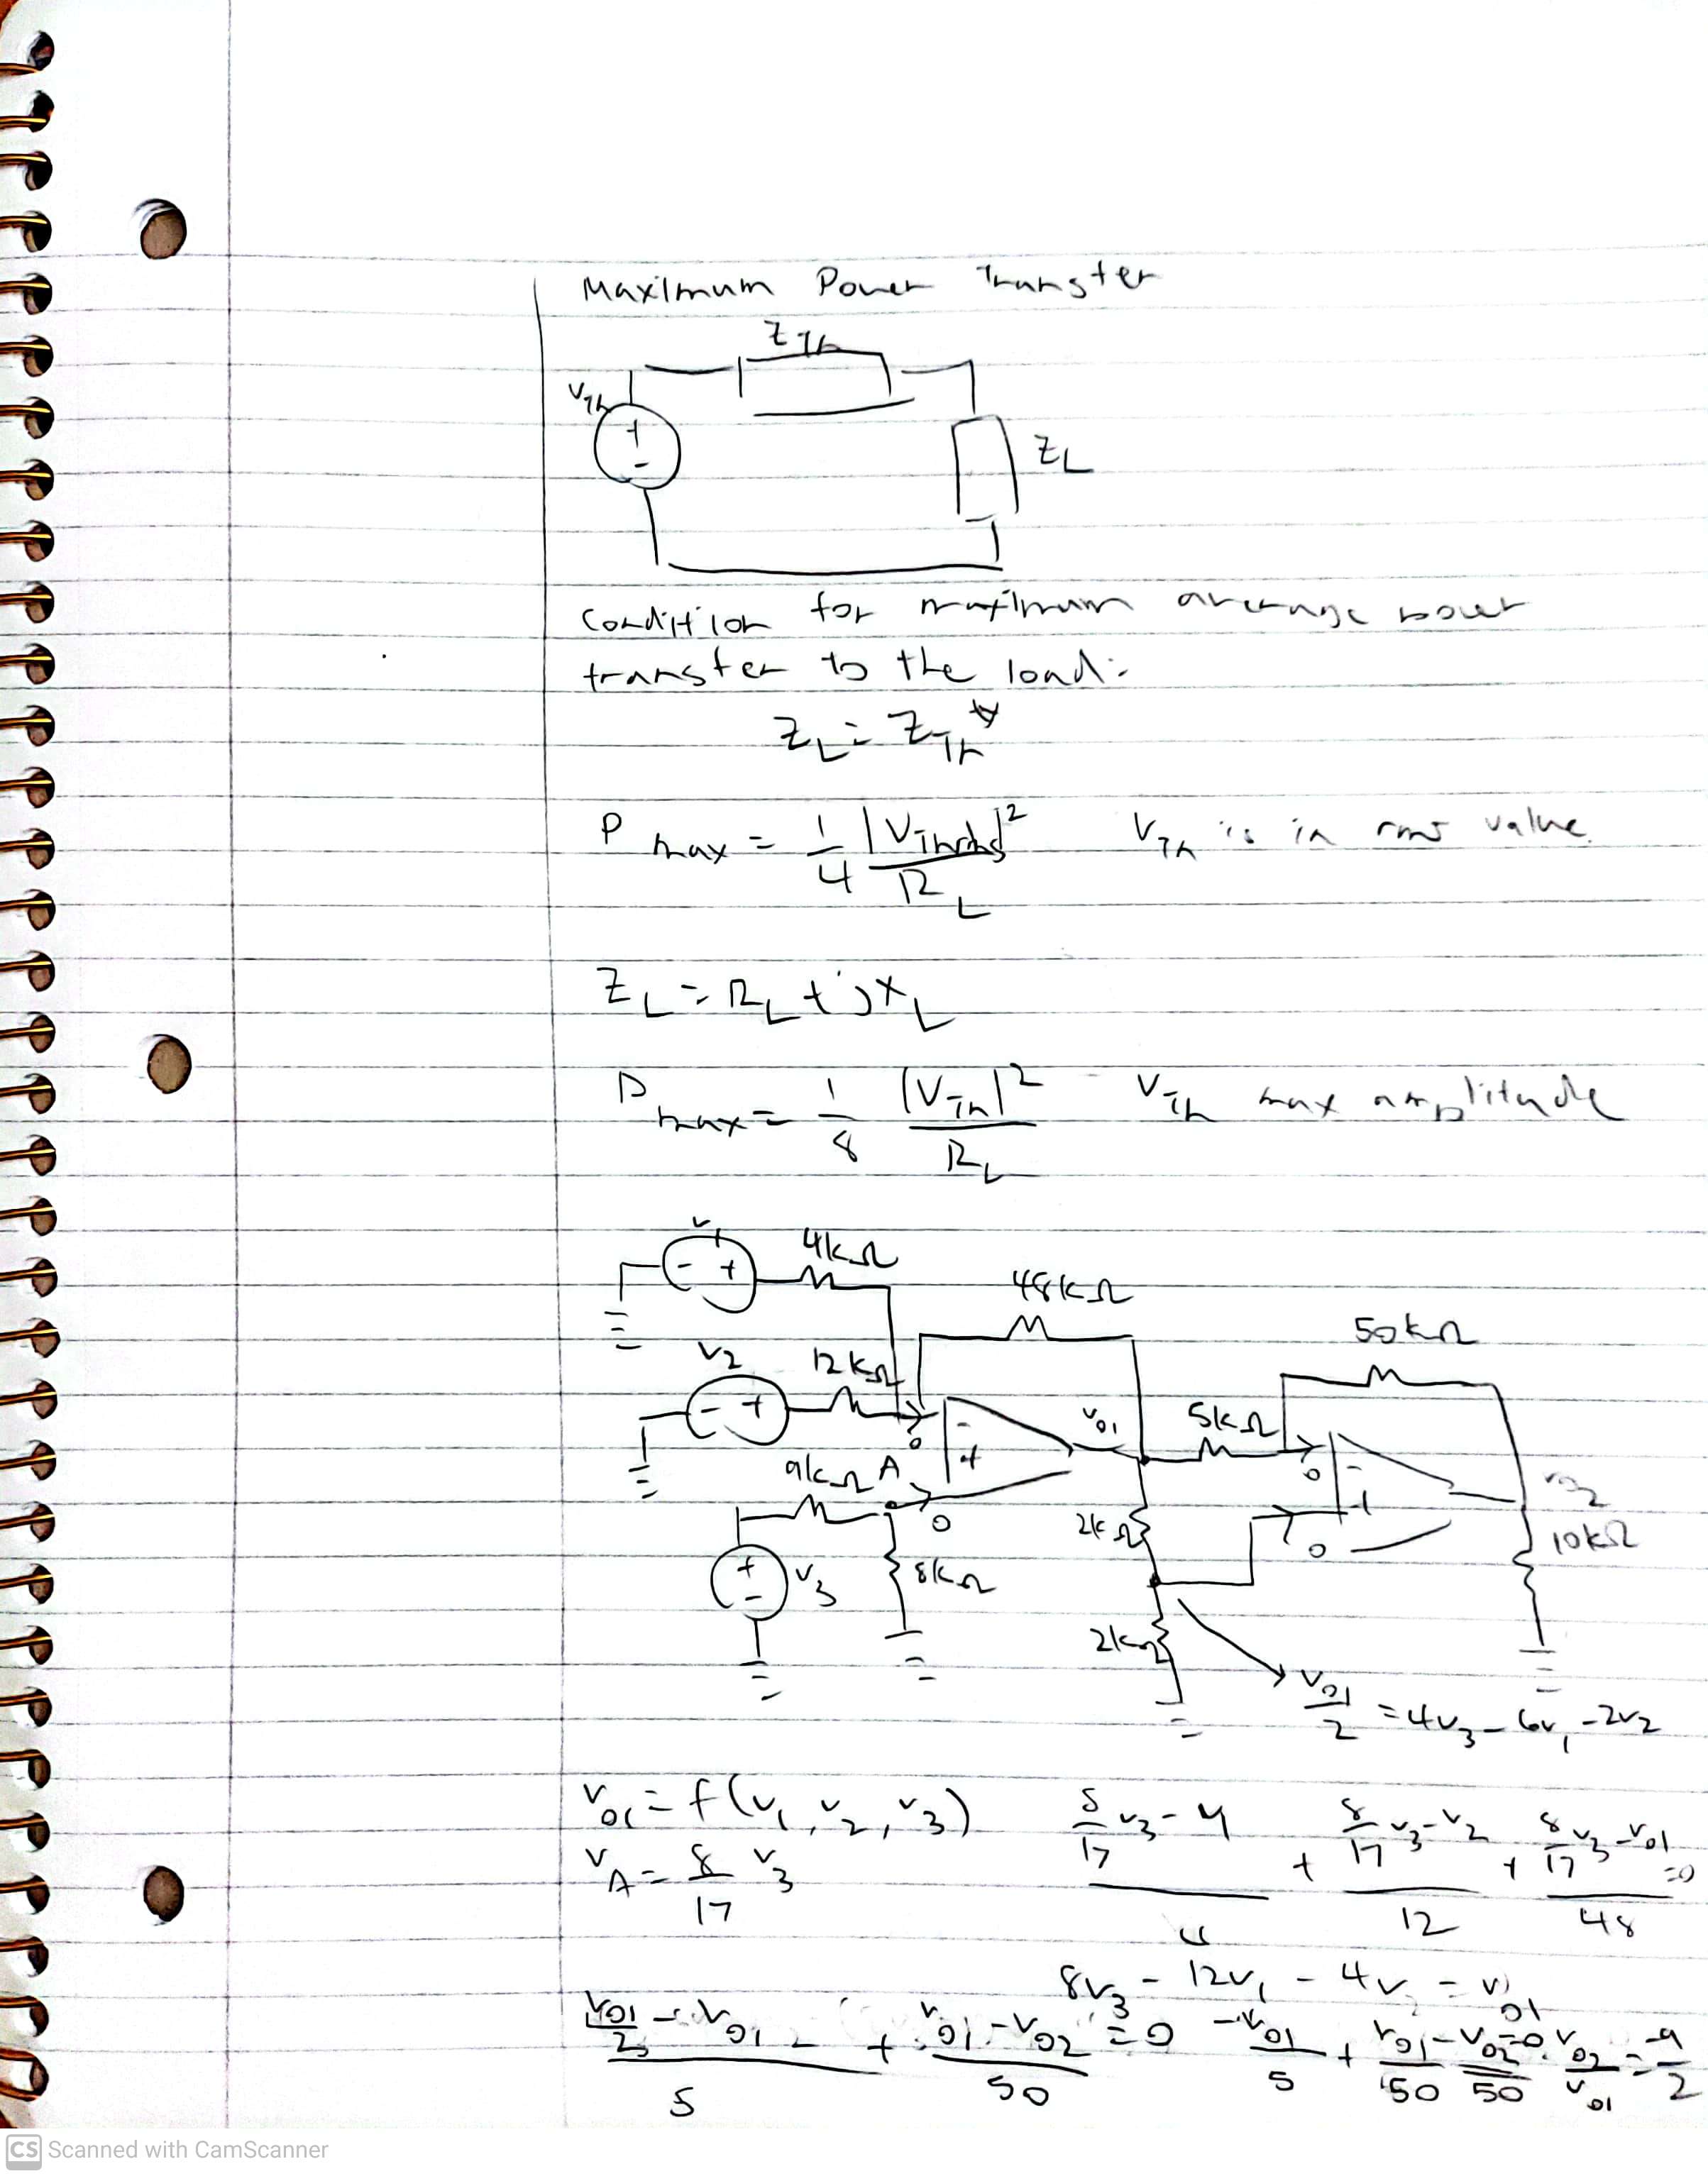 Maximum Power Transfer
Z_Th
V_Th
+
-
Z_L
Condition for maximum average power
transfer to the load:
Z_L = Z_Th*
P_max = 1/4 |V_Thrms|²/R_L V_Th is in rms value.
Z_L = R_L + jX_L
P_max = 1/8 |V_Th|²/R_L V_Th max amplitude
v1
- +
4kΩ
48kΩ
50kΩ
v2
- +
12kΩ
0
-
+
v01
5kΩ
0
-
+
v02
9kΩ A
0
2kΩ
0
10kΩ
+
-
v3
8kΩ
2kΩ
v01/2 = 4v3 - 6v1 - 2v2
v01 = f(v1, v2, v3)
vA = 8/17 v3
(8/17 v3 - v1)/4 + (8/17 v3 - v2)/12 + (8/17 v3 - v01)/48 = 0
8v3 - 12v1 - 4v2 = v01
(v01/2 - v01)/5 + (v01 - v02)/50 = 0
-v01/5 + v01/50 - v02/50 = 0. v02/v01 = -9/2
CS Scanned with CamScanner